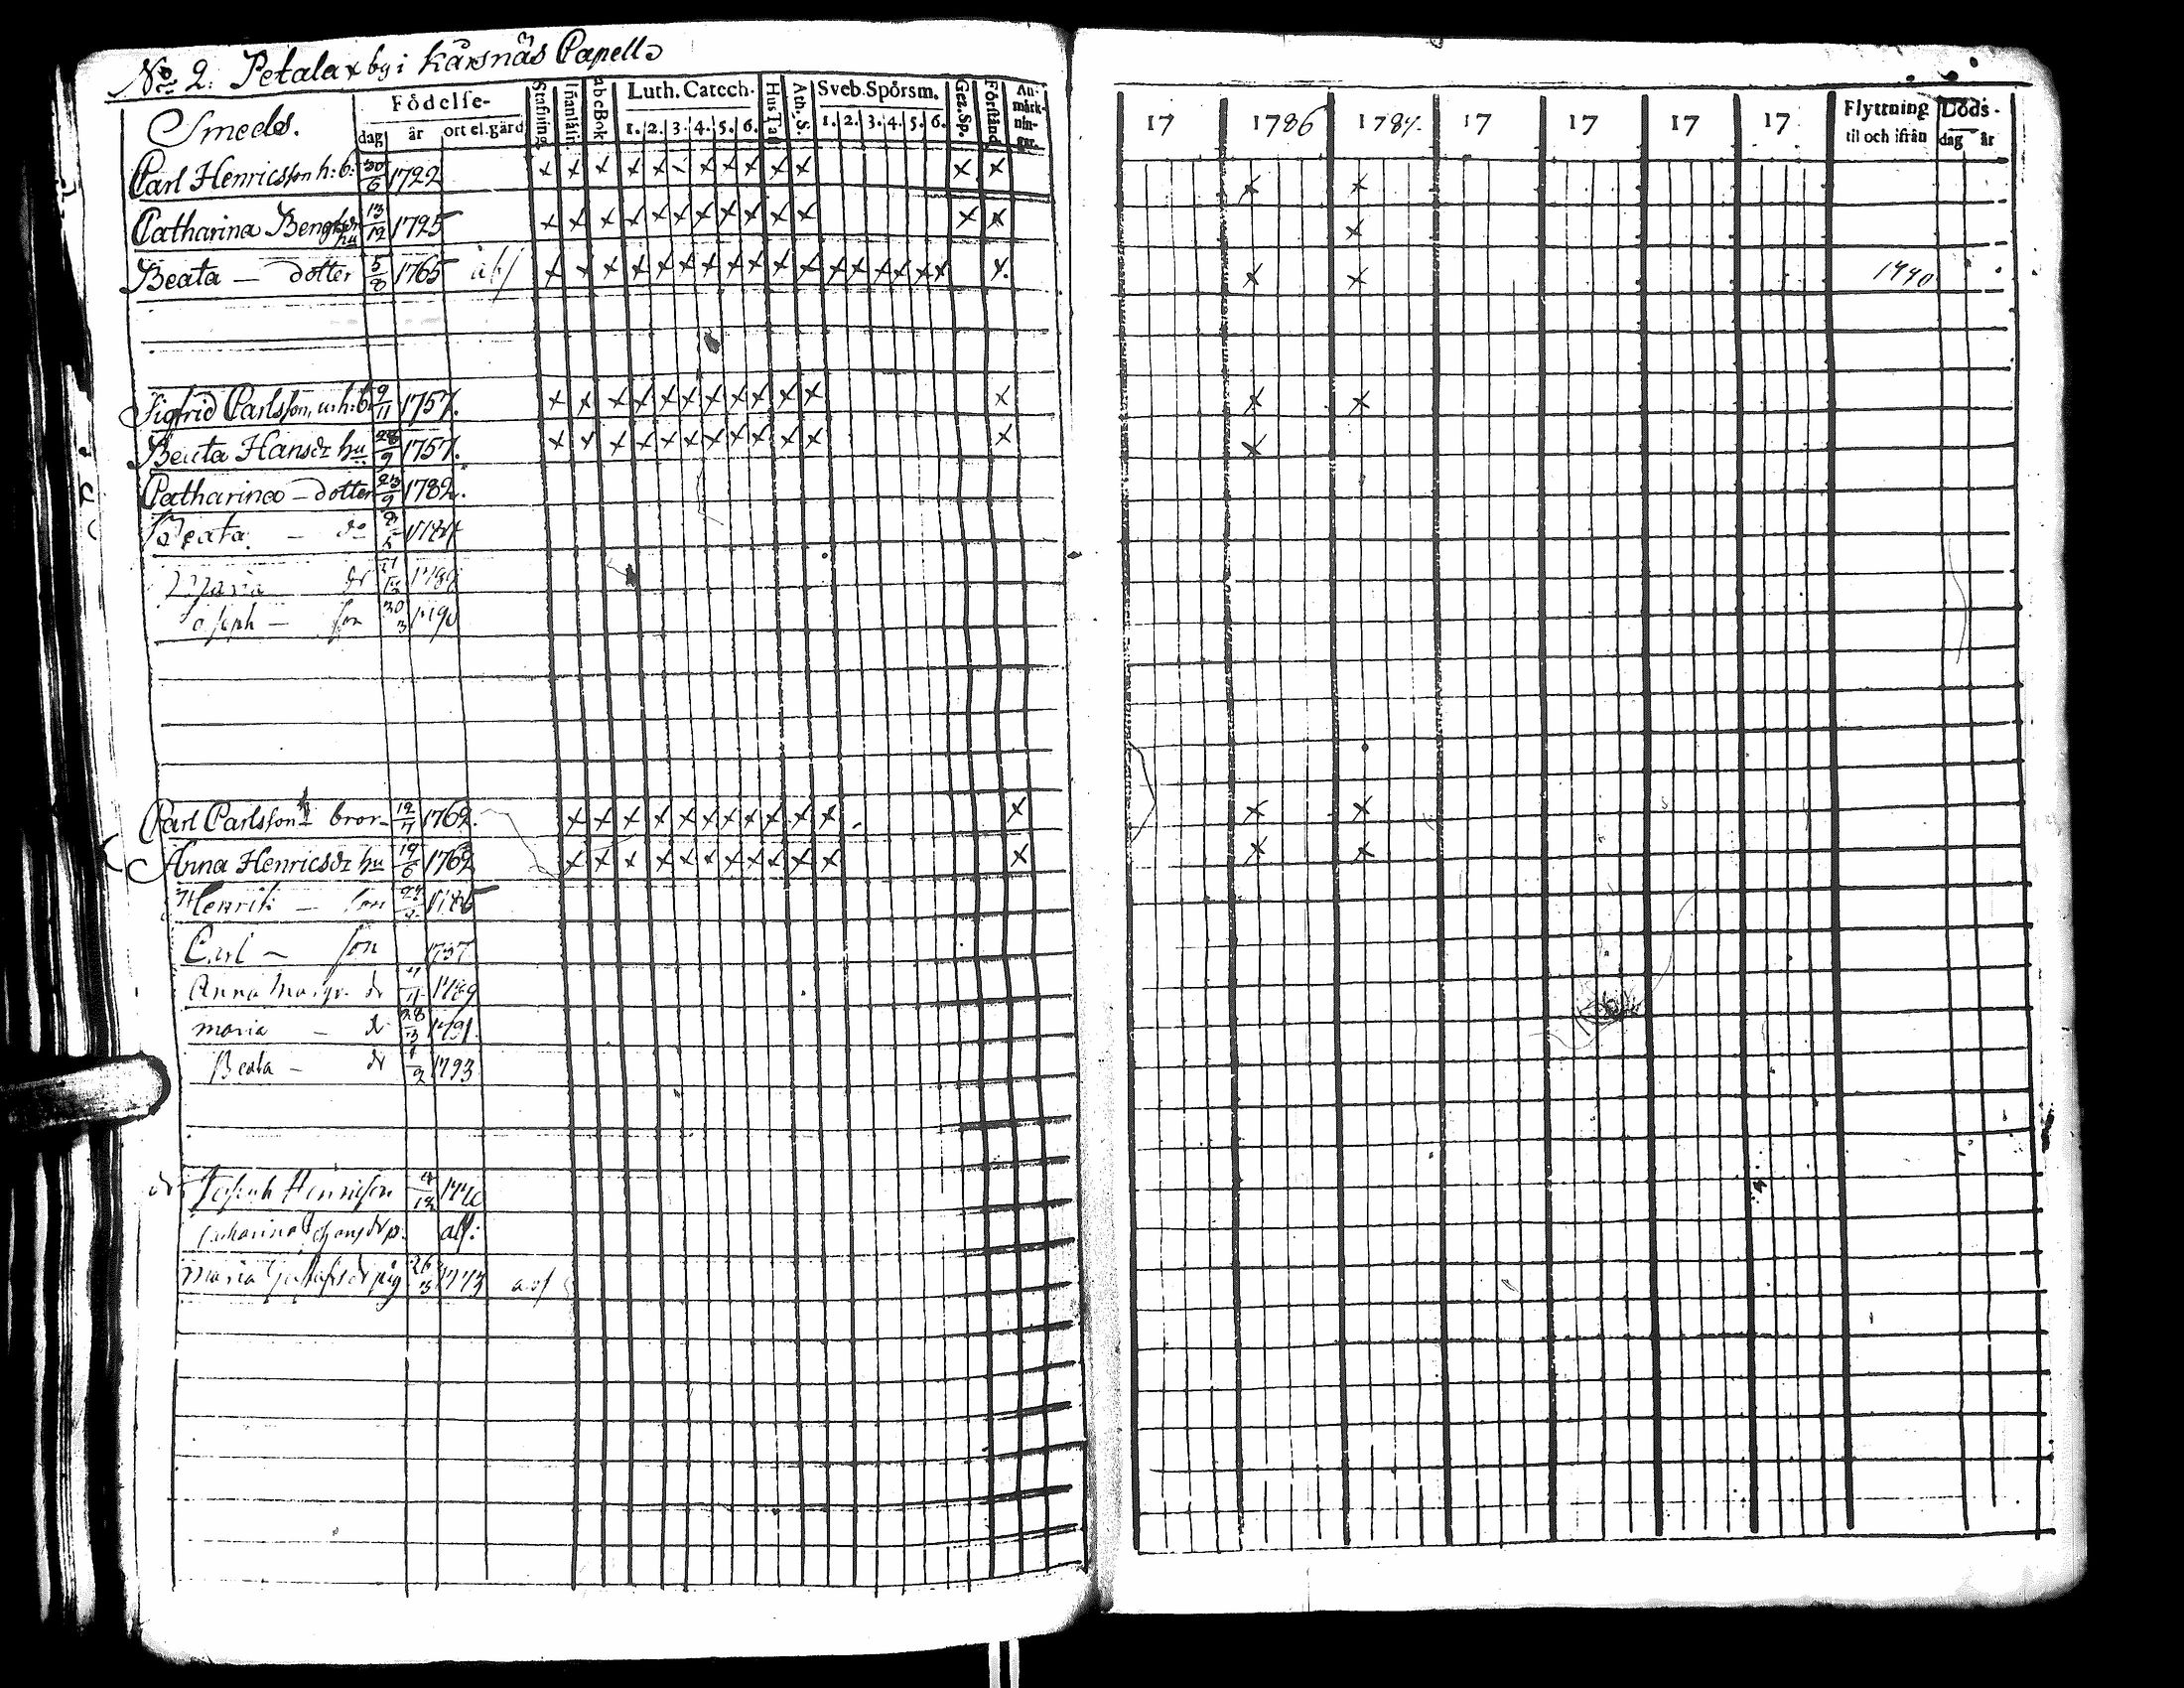 No 2. Petalax by i Kårsnäs Capell
Smeds.
Födelse-
dag
år
ort el. gård
Stafning
Innanläsn.
abcBok
Luth. Catech.
1. 2. 3. 4. 5. 6.
Hus Taf
Ath. S.
Sveb. Spörsm.
1. 2. 3. 4. 5. 6.
Gez. Sp.
Förstånd
An-
märk-
nin-
gar.
17 1786 1787. 17 17 17 17
Flyttning
til och ifrån
Döds-
dag år
Carl Henricsson h:b: 30/6 1722 x x x x x x x x x x x x x x x
Catharina Bengtsdr hu 13/12 1725 x x x x x x x x x x x x x x
Beata — dotter 5/8 1765 x x x x x x x x x x x x x x x x x x x x 1790
Sigfrid Carlsson, u:h:b 9/11 1757. x x x x x x x x x x x x x x
Beata Hansdr hu 28/9 1757. x x x x x x x x x x x x x
Catharina — dotter 23/9 1782.
Beata — do
Maria dr
Joseph — son 30/3 1790
Carl Carlsson bror 12/7 1762. x x x x x x x x x x x x x x
Anna Henricsdr hu 19/6 1762 x x x x x x x x x x x x x x
Henrik — son
Carl — son 1787
Anna Margr. dr 1789
maria — dr 28/3 1791.
Beata — dr 1793
Joseph Henricson
Catharina
Maria pig 26/3 1773